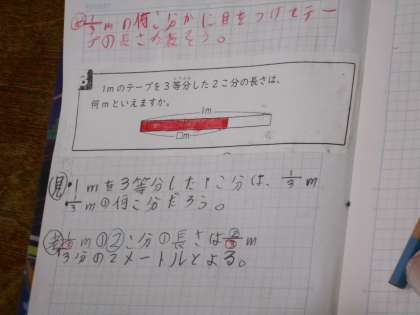 ㋱ 1/3 mの何こ分かに目をつけてテー
プの長さを表そう。
3
1mのテープを3等分した2こ分の長さは、
何mといえますか。
1m
□m
㊊・1mを3等分した1こ分は、1/3 m
・1/3 mの何こ分だろう。
1/3 mの②こ分の長さは2/3 m
3分の2メートルとよむ。